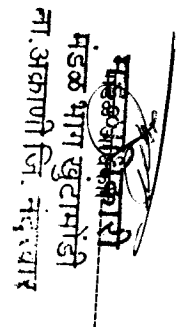 मंडळ अधिकारी
मंडळ भाग खुटामोडी
ता.अक्राणी जि. नंदूरबार